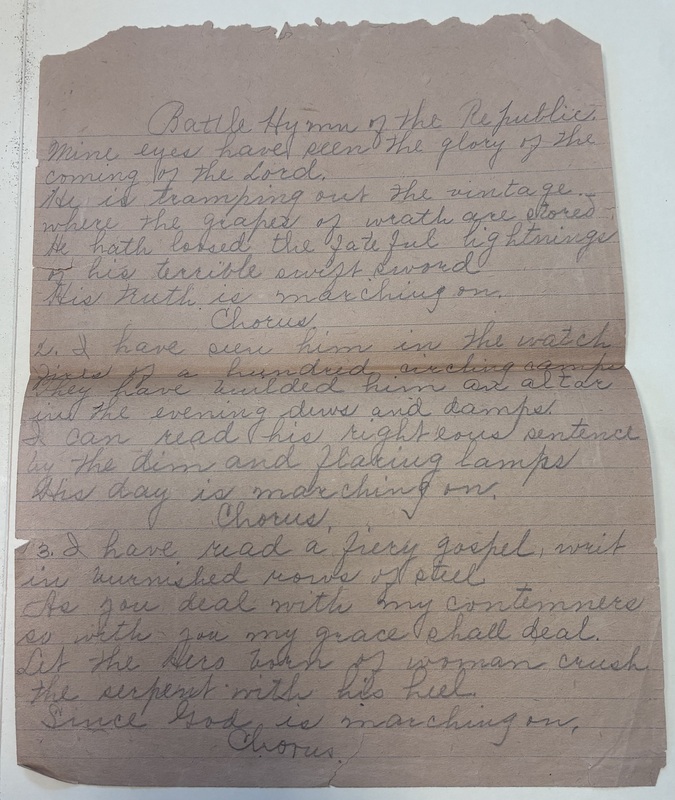 Battle Hymn of the Republic.
Mine eyes have seen the glory of the
coming of the Lord.
He is tramping out the vintage
where the grapes of wrath are stored
He hath loosed the fateful lightnings
of his terrible swift sword
His truth is marching on.
Chorus
2. I have seen him in the watch
fires of a hundred circling camps
They have builded him an altar
in the evening dews and damps.
I can read his righteous sentence
by the dim and flaring lamps
His day is marching on.
Chorus.
3. I have read a fiery gospel, writ
in burnished rows of steel
As you deal with my contemners
so with you my grace shall deal.
Let the Hero born of woman crush
the serpent with his heel.
Since God is marching on.
Chorus.